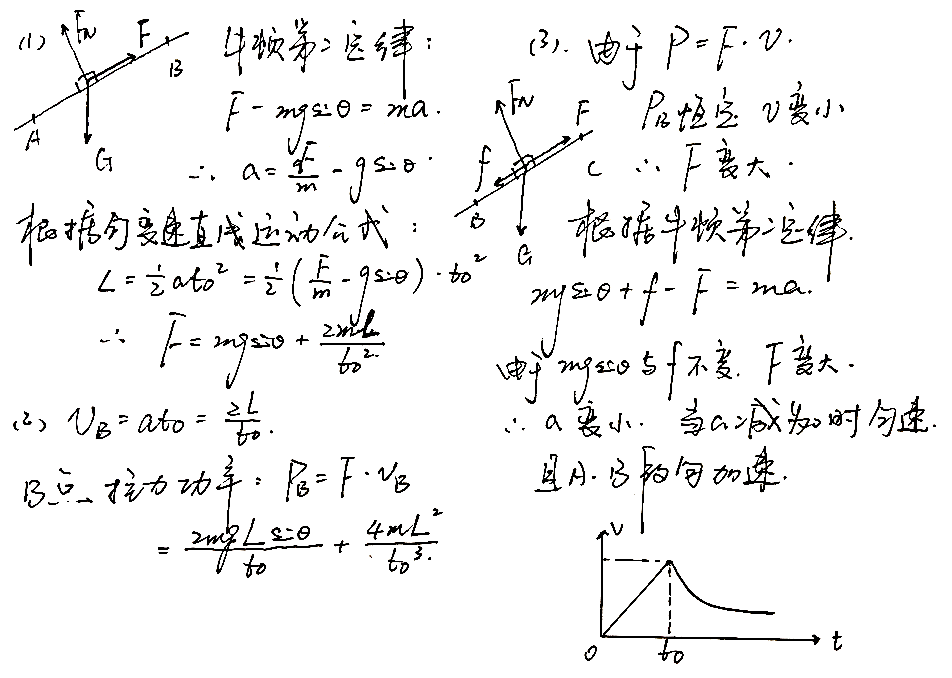 (1) FN F B A G
牛顿第二定律:
F - mgsinθ = ma.
∴ a = F/m - gsinθ.
根据匀变速直线运动公式:
L = 1/2 at₀² = 1/2 (F/m - gsinθ) · t₀²
∴ F = mgsinθ + 2mL/t₀²
(2) vB = at₀ = 2L/t₀.
B点拉力功率: PB = F · vB
= 2mgLsinθ/t₀ + 4mL²/t₀³.
(3). 由于 P = F · v.
PB恒定 v变小
∴ F变大.
FN F f C B G
根据牛顿第二定律.
mgsinθ + f - F = ma.
由于 mgsinθ与f不变. F变大.
∴ a变小. 当a减为0时匀速.
且A.B段匀加速.
v
O t₀ t